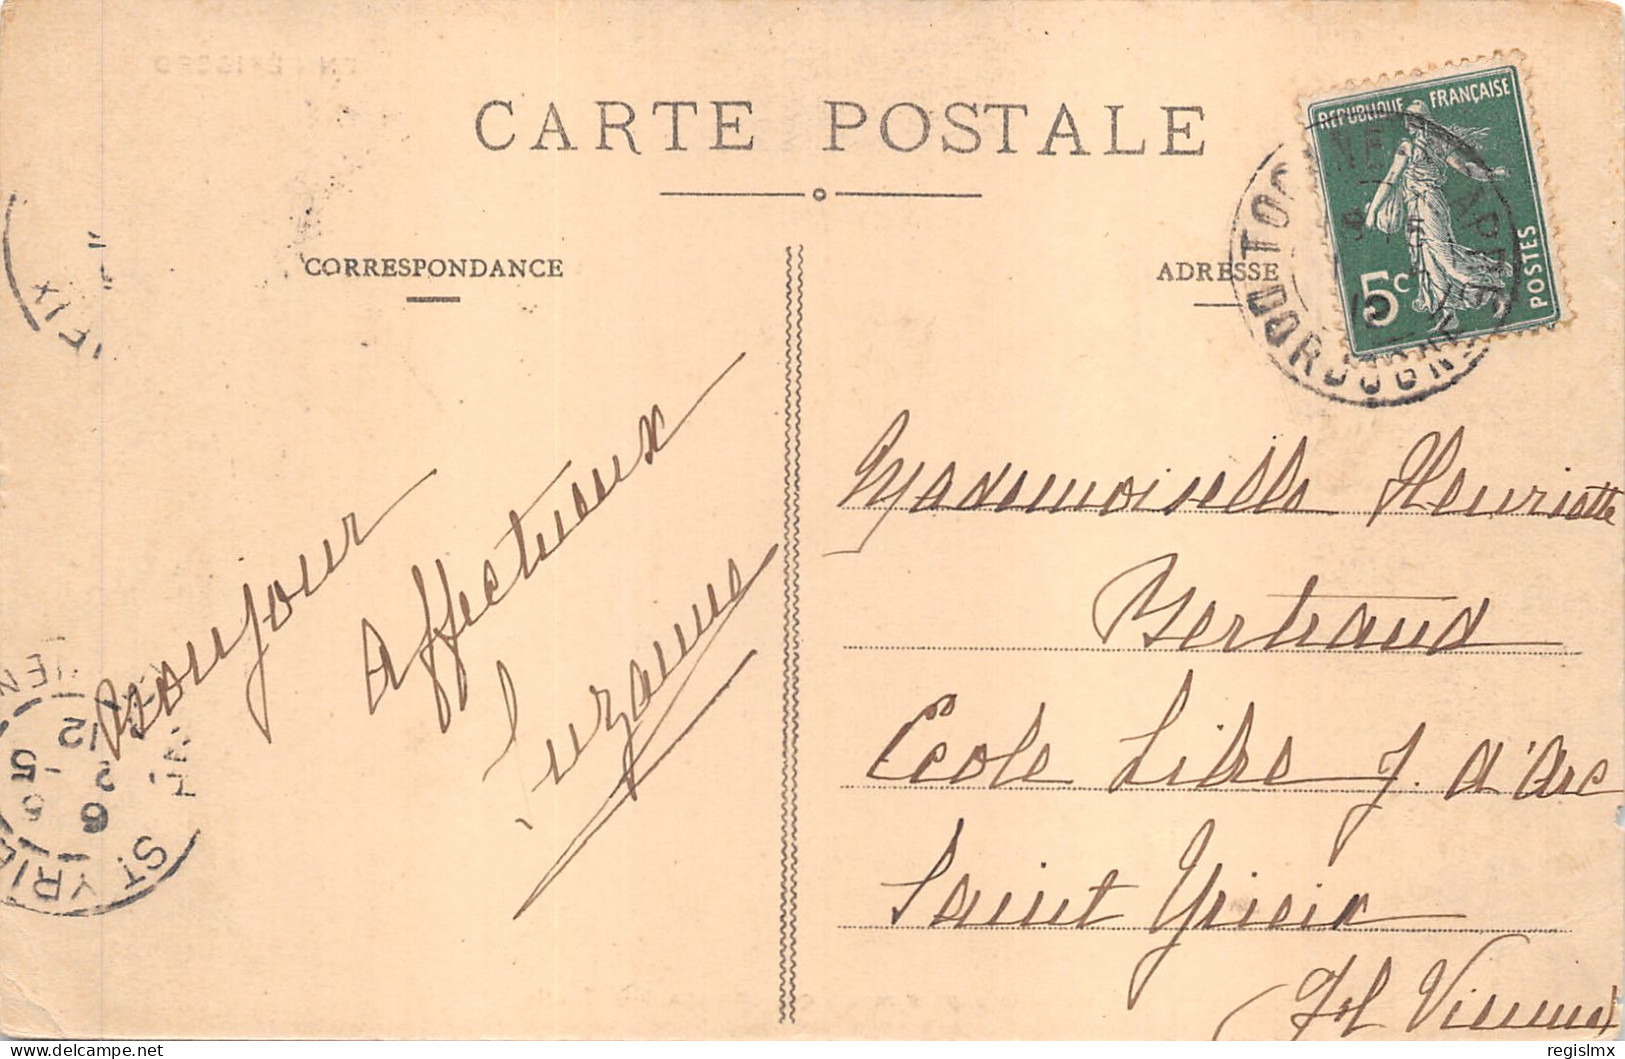 CARTE POSTALE
CORRESPONDANCE
ADRESSE
REPUBLIQUE FRANÇAISE
5c
POSTES
DORDOGNE
Bonjour
affectueux
Suzanne
Mademoiselle Henriette
Bertrand
Ecole Libre J. d'Arc
Saint Yrieix
(Hte Vienne)
ST YRIE
12
2 5
6
IEIX
regislmx